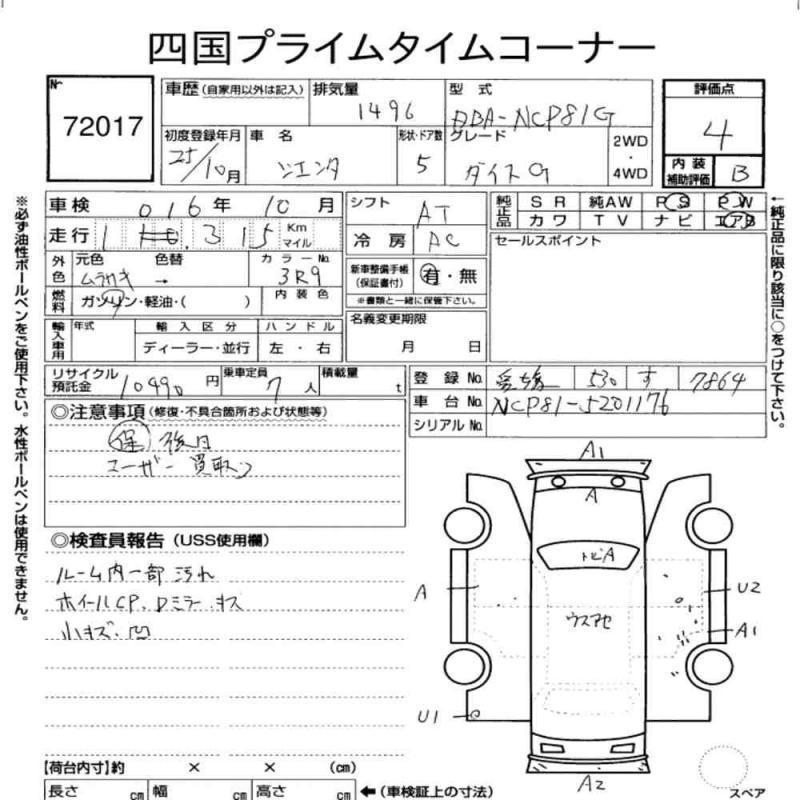 四国プライムタイムコーナー
Nr 72017
車歴 (自家用以外は記入)
排気量 1496
型式 DBA-NCP81G
評価点 4
初度登録年月 25/10月
車名 シエンタ
形状・ドア数 5
グレード ダイスG
2WD・4WD
内装補助評価 B
車検 016年 10月
シフト AT
純正品 SR 純AW PS PW
カワ TV ナビ エアB
走行 1 .315 Km マイル
冷房 AC
セールスポイント
外色 元色 ムラサキ 色替 → カラーNo. 3R9
新車整備手帳(保証書付) 有・無
※書類と一緒に保管下さい。
燃料 ガソリン・軽油・( ) 内装色
輸入車用 年式 輸入区分 ハンドル
ディーラー・並行 左・右
名義変更期限
月 日
リサイクル預託金 10490円
乗車定員 7人
積載量 t
登録No. 愛媛 530 す 7864
車台No. NCP81-5201176
シリアルNo.
◎注意事項 (修復・不具合箇所および状態等)
保 後日
ユーザー買取り
◎検査員報告 (USS使用欄)
ルーム内一部汚れ
ホイールCP、Dミラーキズ
小キズ・凹
A1
A
トビA
A
U2
ウスアセ
A1
U1
A2
スペア
【荷台内寸】約 × × (cm)
長さ cm 幅 cm 高さ cm ←(車検証上の寸法)
※必ず油性ボールペンをご使用下さい。水性ボールペンは使用できません。
←純正品に限り該当に○をつけて下さい。